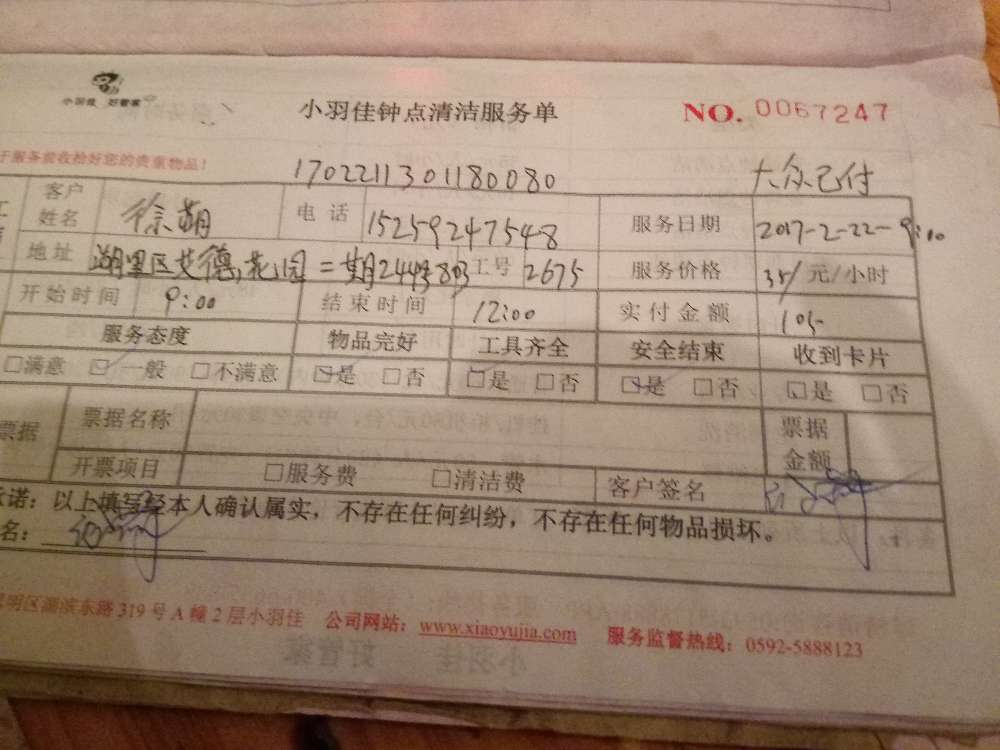 小羽佳 好管家
小羽佳钟点清洁服务单 NO. 0067247
于服务前收拾好您的贵重物品! 1702211301180080 大众已付
客户姓名 徐 电话 15259247548 服务日期 2017-2-22-9:00
地址 湖里区艾德花园二期244号803 工号 2675 服务价格 35/元/小时
开始时间 9:00 结束时间 12:00 实付金额 105
服务态度 物品完好 工具齐全 安全结束 收到卡片
□满意 ☑一般 □不满意 ☑是 □否 ☑是 □否 ☑是 □否 ☑是 □否
票据 票据名称 票据金额
开票项目 □服务费 □清洁费 客户签名
承诺：以上填写经本人确认属实，不存在任何纠纷，不存在任何物品损坏。
名：
明区湖滨东路319号A幢2层小羽佳 公司网站：www.xiaoyujia.com 服务监督热线：0592-5888123